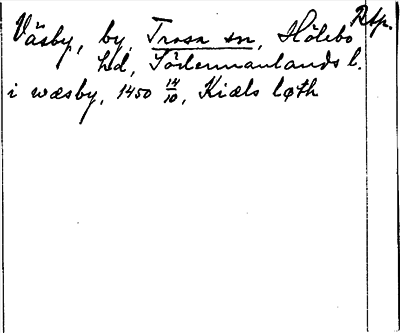 Väsby, by, Trosa sn, Hölebo Rsp.
hd, Södermanlands l.
i wæsby, 1450 14/10, Kiæls løth